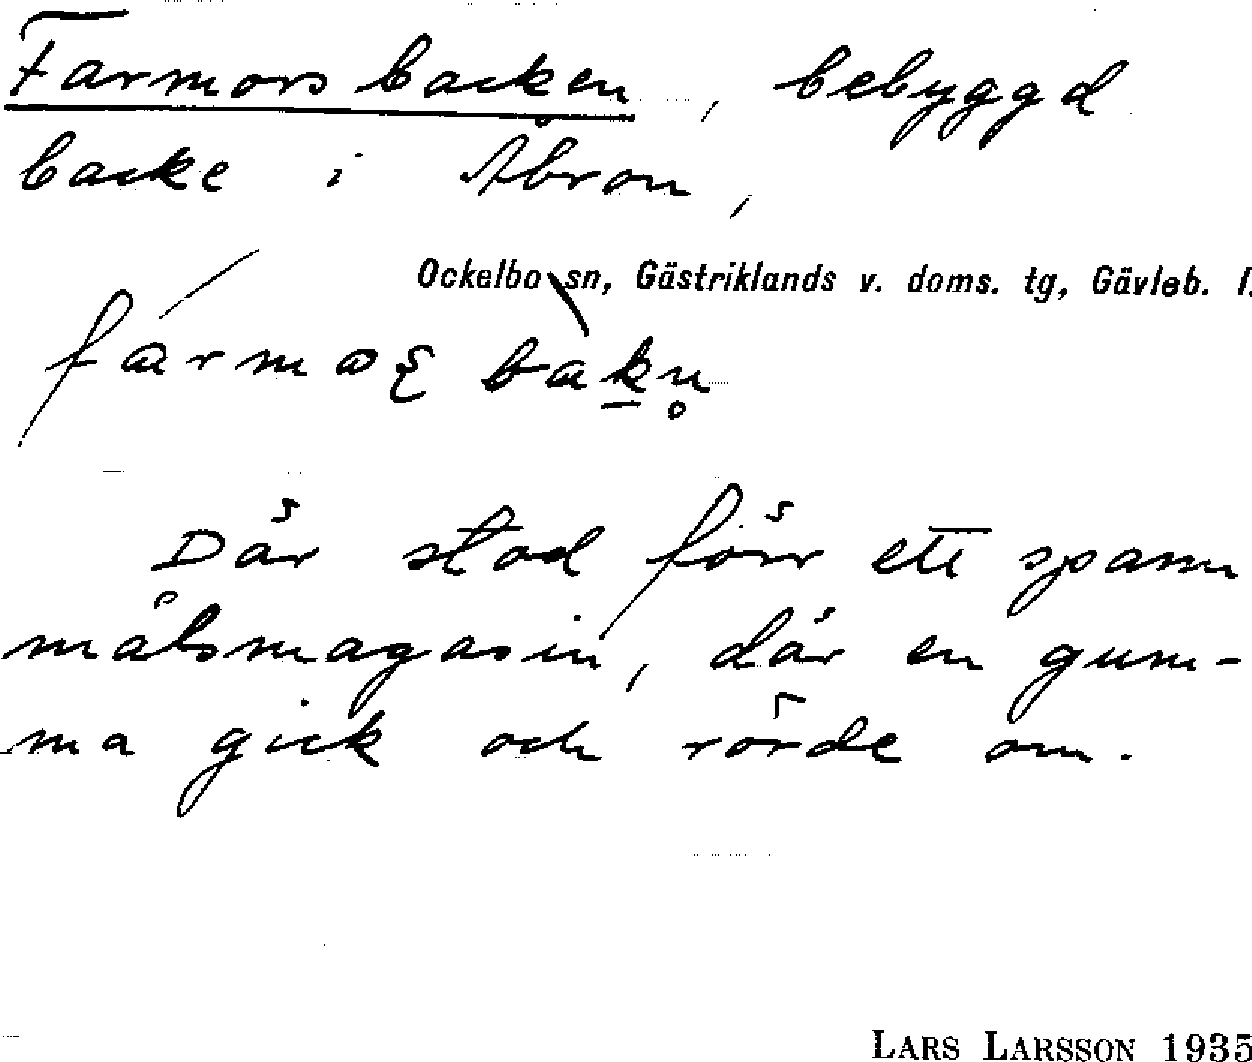 Farmorsbacken, bebyggd
backe i Åbron,
Ockelbo sn, Gästriklands v. doms. tg, Gävleb. l.
Där stod förr ett spann
målsmagasin, där en gum-
ma gick och rörde om.
LARS LARSSON 1935